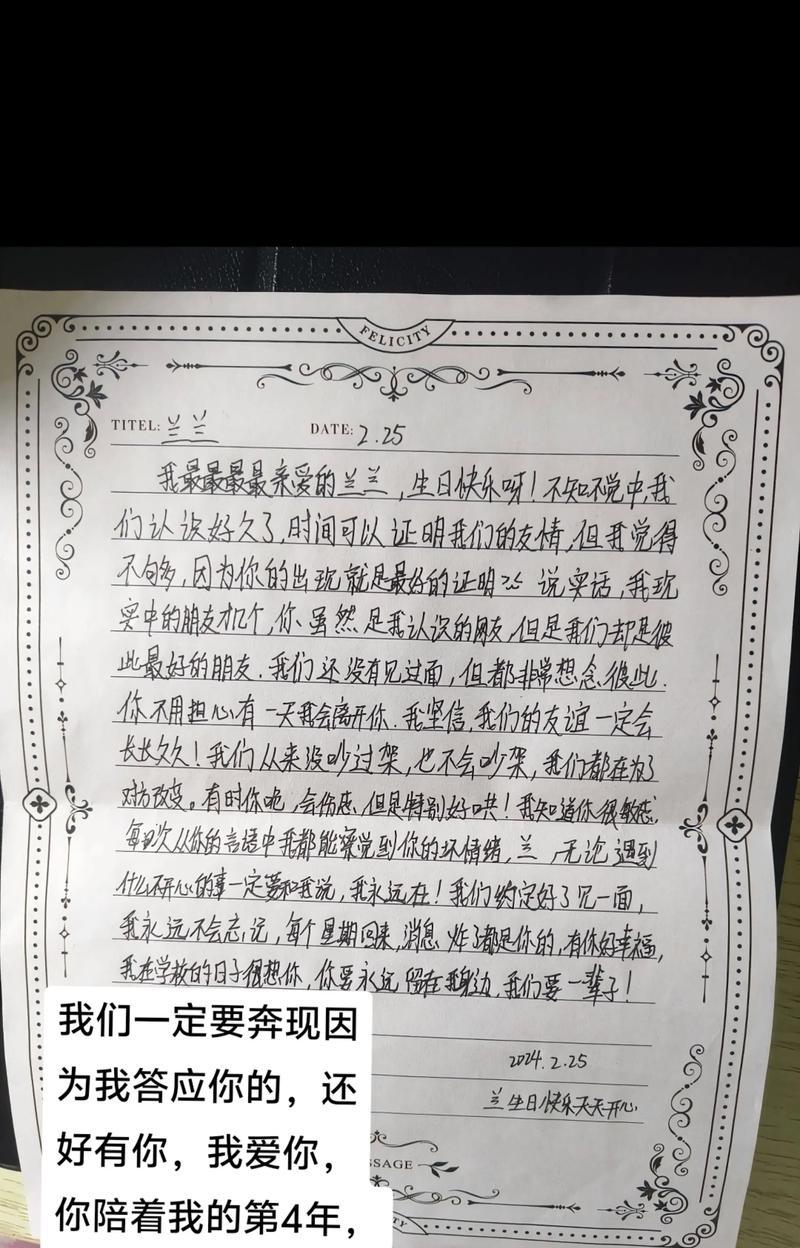 FELICITY
TITEL: 兰兰 DATE: 2.25
我最最最最亲爱的兰兰，生日快乐呀！不知不觉中，我
们认识好久了，时间可以证明我们的友情，但我觉得
不够，因为你的出现就是最好的证明 说实话，我现
实中的朋友才几个，你虽然是我认识的网友，但是我们却是彼
此最好的朋友．我们还没有见过面，但都非常想念彼此．
你不用担心有一天我会离开你．我坚信，我们的友谊一定会
长长久久！我们从来没吵过架，也不会吵架，我们都在为了
对方改变。有时你呢，会伤感，但是特别好哄！我知道你很敏感，
每次从你的言语中我都能察觉到你的坏情绪，兰，无论遇到
什么不开心的事一定要和我说，我永远在！我们约定好了见一面，
我永远不会忘记，每个星期回来，消息炸了都是你的，有你好幸福，
我在学校的日子很想你，你要永远留在我身边，我们要一辈子！
2024.2.25
兰生日快乐天天开心
SSAGE
TY
我们一定要奔现因
为我答应你的，还
好有你，我爱你，
你陪着我的第4年，